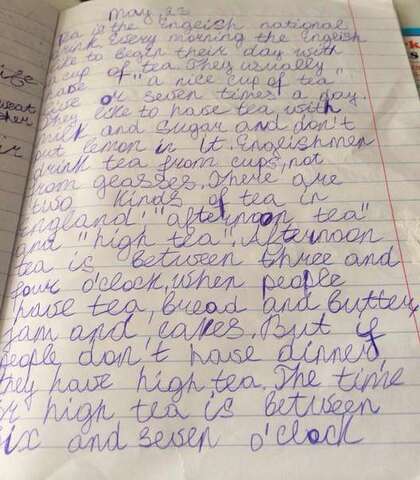 May 23
Tea is the Engeish national
drink. Every morning the Engeish
like to begin their day with
a cup of tea. They usually
have "a nice cup of tea"
five or seven times a day.
They like to have tea with
milk and sugar and don't
put lemon in it. Engeishmen
drink tea from cups, not
from geasses. There are
two kinds of tea in
England: "afternoon tea"
and "high tea". Afternoon
tea is between three and
four o'clock, when people
have tea, bread and butter,
jam and, cakes. But if
people don't have dinner,
they have high tea. The time
or high tea is between
six and seven o'clock